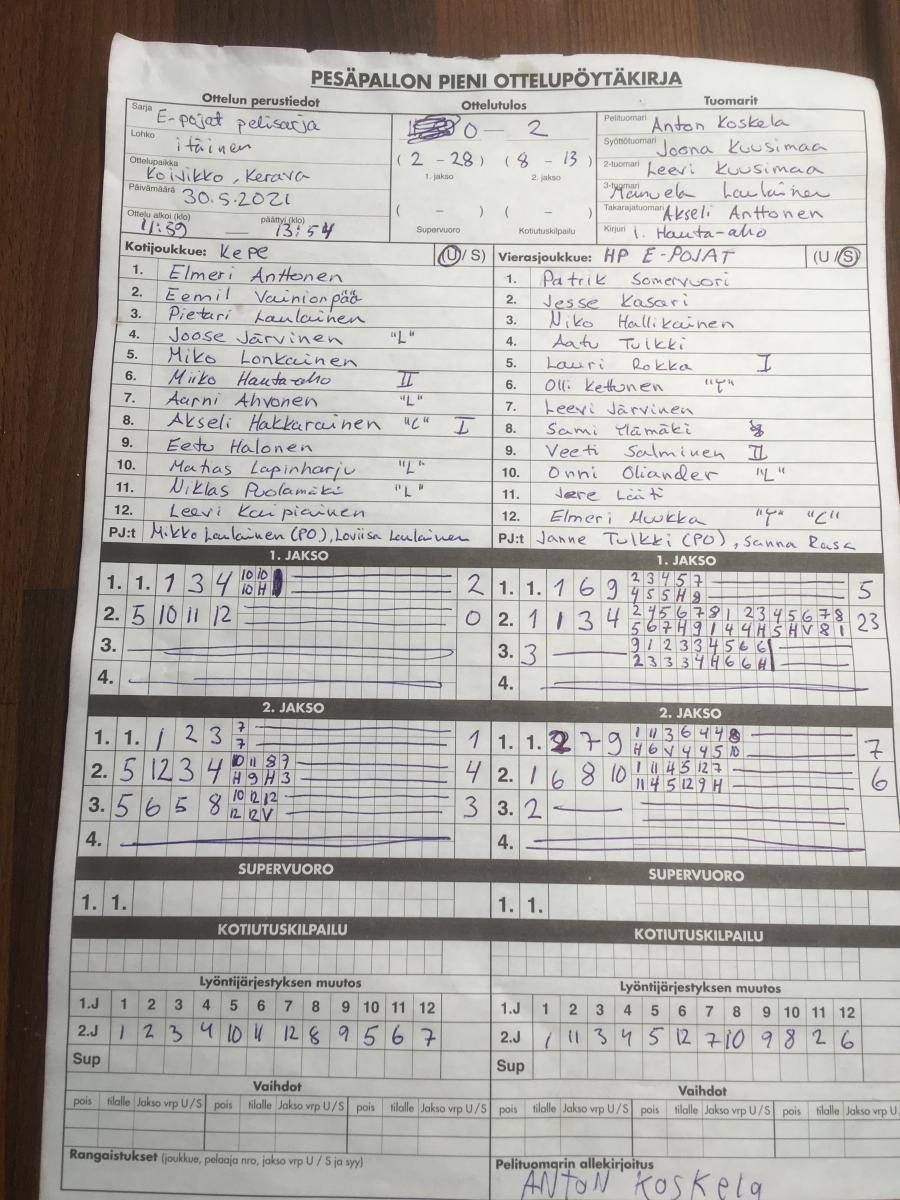 PESÄPALLON PIENI OTTELUPÖYTÄKIRJA
Ottelun perustiedot
Sarja E-pojat pelisarja
Lohko itäinen
Ottelupaikka Koivikko, Kerava
Päivämäärä 30.5.2021
Ottelu alkoi (klo) 11:39 — päättyi (klo) 13:54
Ottelutulos
0 — 2
(2 - 28) (8 - 13)
1. jakso 2. jakso
( - ) ( - )
Supervuoro Kotiutuskilpailu
Tuomarit
Pelituomari Anton Koskela
Syöttötuomari Joona Kuusimaa
2-tuomari Leevi Kuusimaa
3-tuomari Manuela Laulainen
Takarajatuomari Akseli Anttonen
Kirjuri I. Hauta-aho
Kotijoukkue: Kepe (U/S)
1. Elmeri Anttonen
2. Eemil Vainionpää
3. Pietari Laulainen
4. Joose Järvinen "L"
5. Miko Lonkainen
6. Miiko Hauta-aho II
7. Aarni Ahvonen "L"
8. Akseli Hakkarainen "C" I
9. Eetu Halonen
10. Matias Lapinharju "L"
11. Niklas Puolamäki "L"
12. Leevi Karpiainen
PJ:t Mikko Laulainen (PO), Loviisa Laulainen
Vierasjoukkue: HP E-POJAT (U/S)
1. Patrik Somervuori
2. Jesse Kasari
3. Niko Hallikainen
4. Aatu Tulkki
5. Lauri Rokka I
6. Olli Kettunen "T"
7. Leevi Järvinen
8. Sami Ylämäki
9. Veeti Salminen II
10. Onni Oliander "L"
11. Jere Lääti
12. Elmeri Muukka "T" "C"
PJ:t Janne Tulkki (PO), Sanna Rasa
1. JAKSO
1. 1. 1 3 4 10 10 2
10 H
2. 5 10 11 12 0
3.
4.
1. JAKSO
1. 1. 1 6 9 2 3 4 5 7 5
4 5 5 H 8
2. 1 1 3 4 2 4 5 6 7 8 1 2 3 4 5 6 7 8 23
5 6 7 H 9 1 4 4 H 5 H V 8 1
3. 3 9 1 2 3 3 4 5 6 6
2 3 3 3 4 H 6 6 H
4.
2. JAKSO
1. 1. 1 2 3 7 1
7
2. 5 12 3 4 10 11 8 7 4
H 9 H 3
3. 5 6 5 8 10 12 12 3
12 12 V
4.
2. JAKSO
1. 1. 2 7 9 1 11 3 6 4 4 8 7
H 6 V 4 4 5 10
2. 1 6 8 10 1 11 4 5 12 7 6
11 4 5 12 9 H
3. 2
4.
SUPERVUORO
1. 1.
SUPERVUORO
1. 1.
KOTIUTUSKILPAILU
KOTIUTUSKILPAILU
Lyöntijärjestyksen muutos
1.J 1 2 3 4 5 6 7 8 9 10 11 12
2.J 1 2 3 4 10 11 12 8 9 5 6 7
Sup
Lyöntijärjestyksen muutos
1.J 1 2 3 4 5 6 7 8 9 10 11 12
2.J 1 11 3 4 5 12 7 10 9 8 2 6
Sup
Vaihdot
pois tilalle Jakso vrp U/S pois tilalle Jakso vrp U/S pois tilalle Jakso vrp U/S
Vaihdot
pois tilalle Jakso vrp U/S pois tilalle Jakso vrp U/S pois tilalle Jakso vrp U
Rangaistukset (joukkue, pelaaja nro, jakso vrp U / S ja syy)
Pelituomarin allekirjoitus
ANTON KOSKela